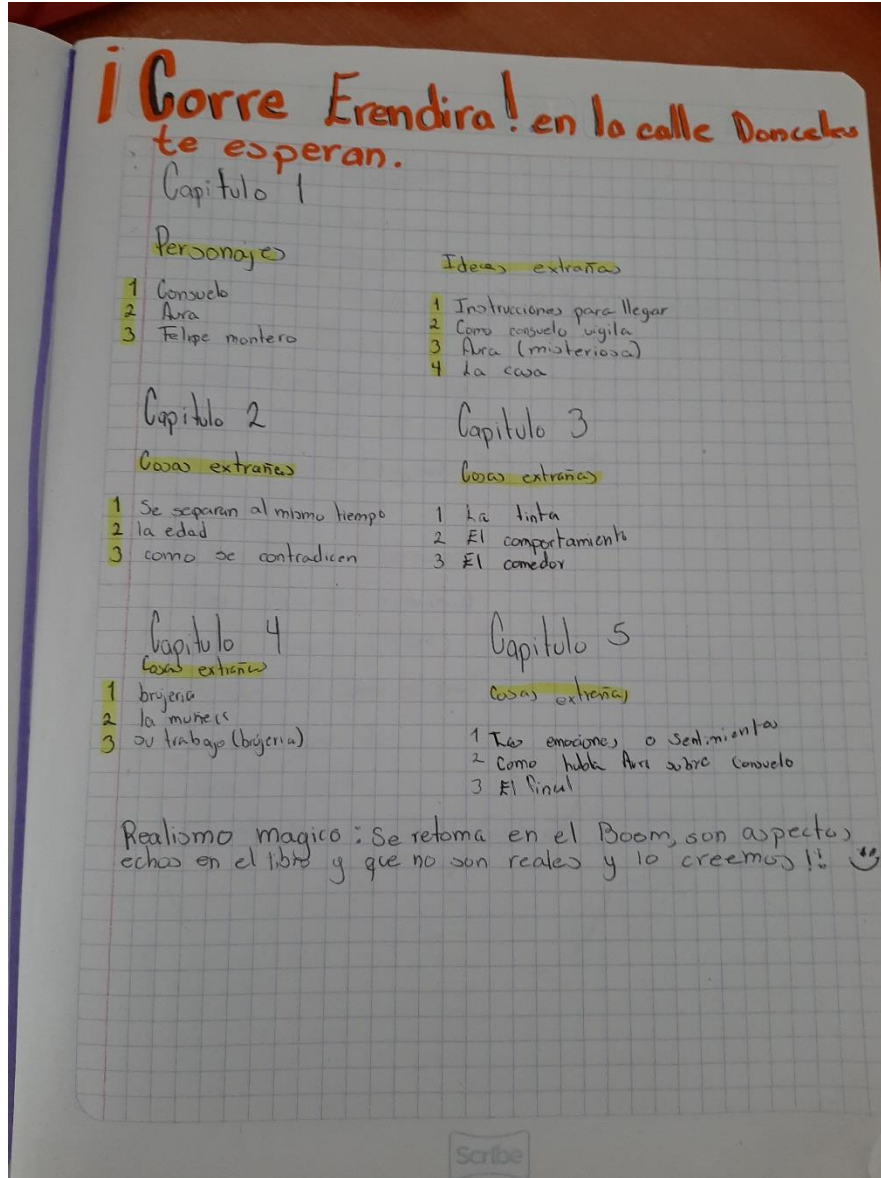 ¡Corre Erendira! en la calle Donceles
te esperan.
Capitulo 1
Personajes
1 Consuelo
2 Aura
3 Felipe montero
Ideas extrañas
1 Instrucciones para llegar
2 Como consuelo vigila
3 Aura (misteriosa)
4 La casa
Capitulo 2
Cosas extrañas
1 Se separan al mismo tiempo
2 la edad
3 como se contradicen
Capitulo 3
Cosas extrañas
1 La tinta
2 El comportamiento
3 El comedor
Capitulo 4
Cosas extrañas
1 brujeria
2 la muñeca
3 su trabajo (brujeria)
Capitulo 5
Cosas extrañas
1 Las emociones o sentimientos
2 Como habla Aura sobre Consuelo
3 El final
Realismo magico: Se retoma en el Boom, son aspectos
echos en el libro y que no son reales y lo creemos!!
Scribe